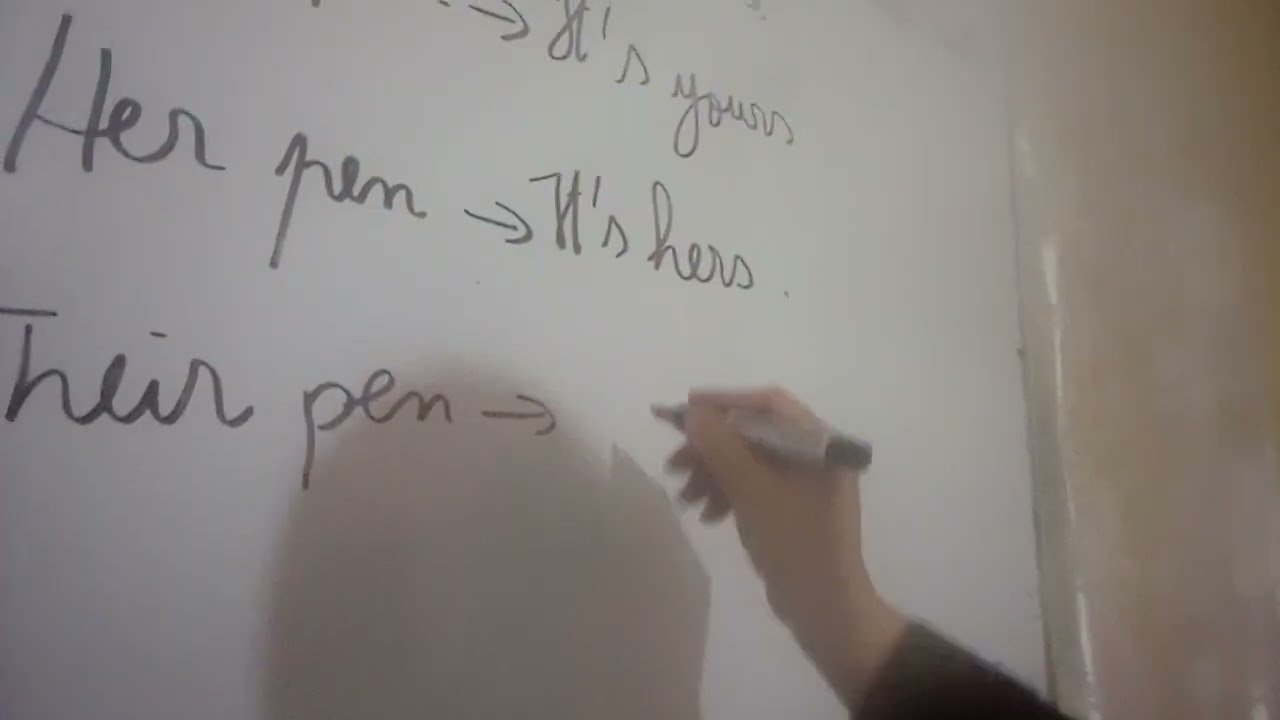 → It's yours
Her pen → It's hers.
Their pen →